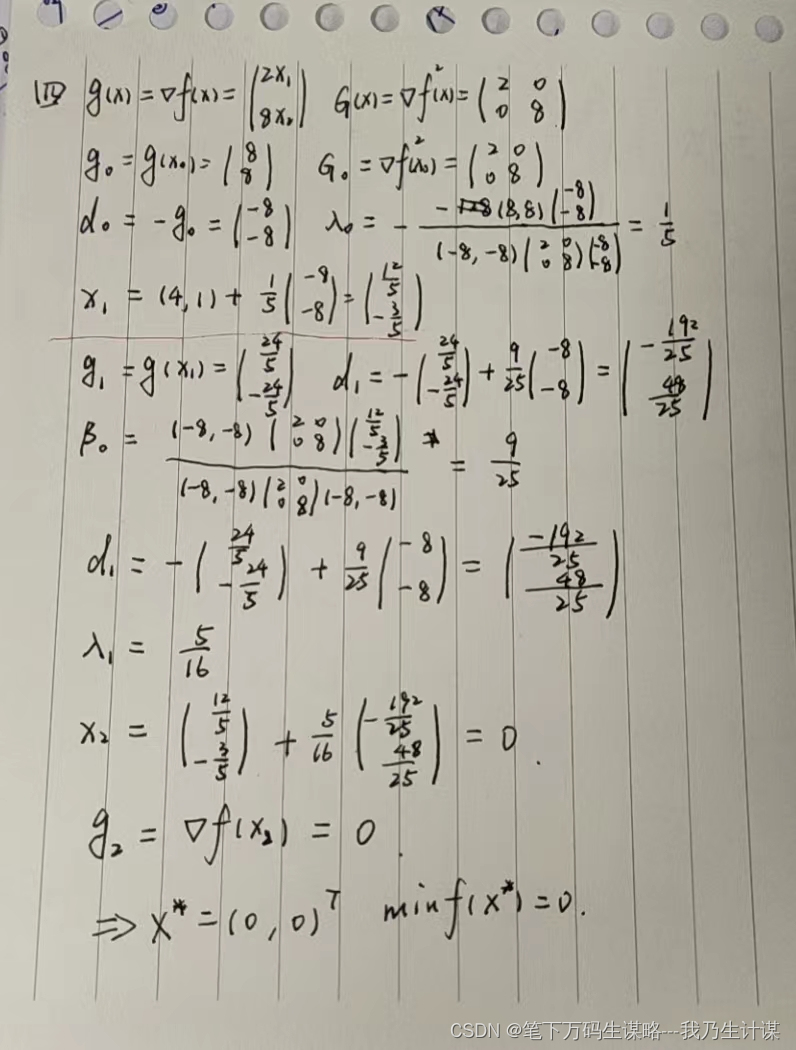 四 g(x) = ∇f(x) = (2x₁ 8x₂) G(x) = ∇f²(x) = (2 0 0 8)
g₀ = g(x₀) = (8 8) G₀ = ∇f²(x₀) = (2 0 0 8)
d₀ = -g₀ = (-8 -8) λ₀ = - -(8,8)(-8 -8) / (-8,-8)(2 0 0 8)(-8 -8) = 1/5
x₁ = (4,1) + 1/5 (-8 -8) = (12/5 -3/5)
g₁ = g(x₁) = (24/5 -24/5) d₁ = -(24/5 -24/5) + 9/25 (-8 -8) = (-192/25 48/25)
β₀ = (-8,-8)(2 0 0 8)(12/5 -3/5) / (-8,-8)(2 0 0 8)(-8,-8) = 9/25
d₁ = -(24/5 -24/5) + 9/25 (-8 -8) = (-192/25 48/25)
λ₁ = 5/16
x₂ = (12/5 -3/5) + 5/16 (-192/25 48/25) = 0.
g₂ = ∇f(x₂) = 0.
⇒ x* = (0,0)ᵀ minf(x*) = 0.
CSDN @笔下万码生谋略---我乃生计谋